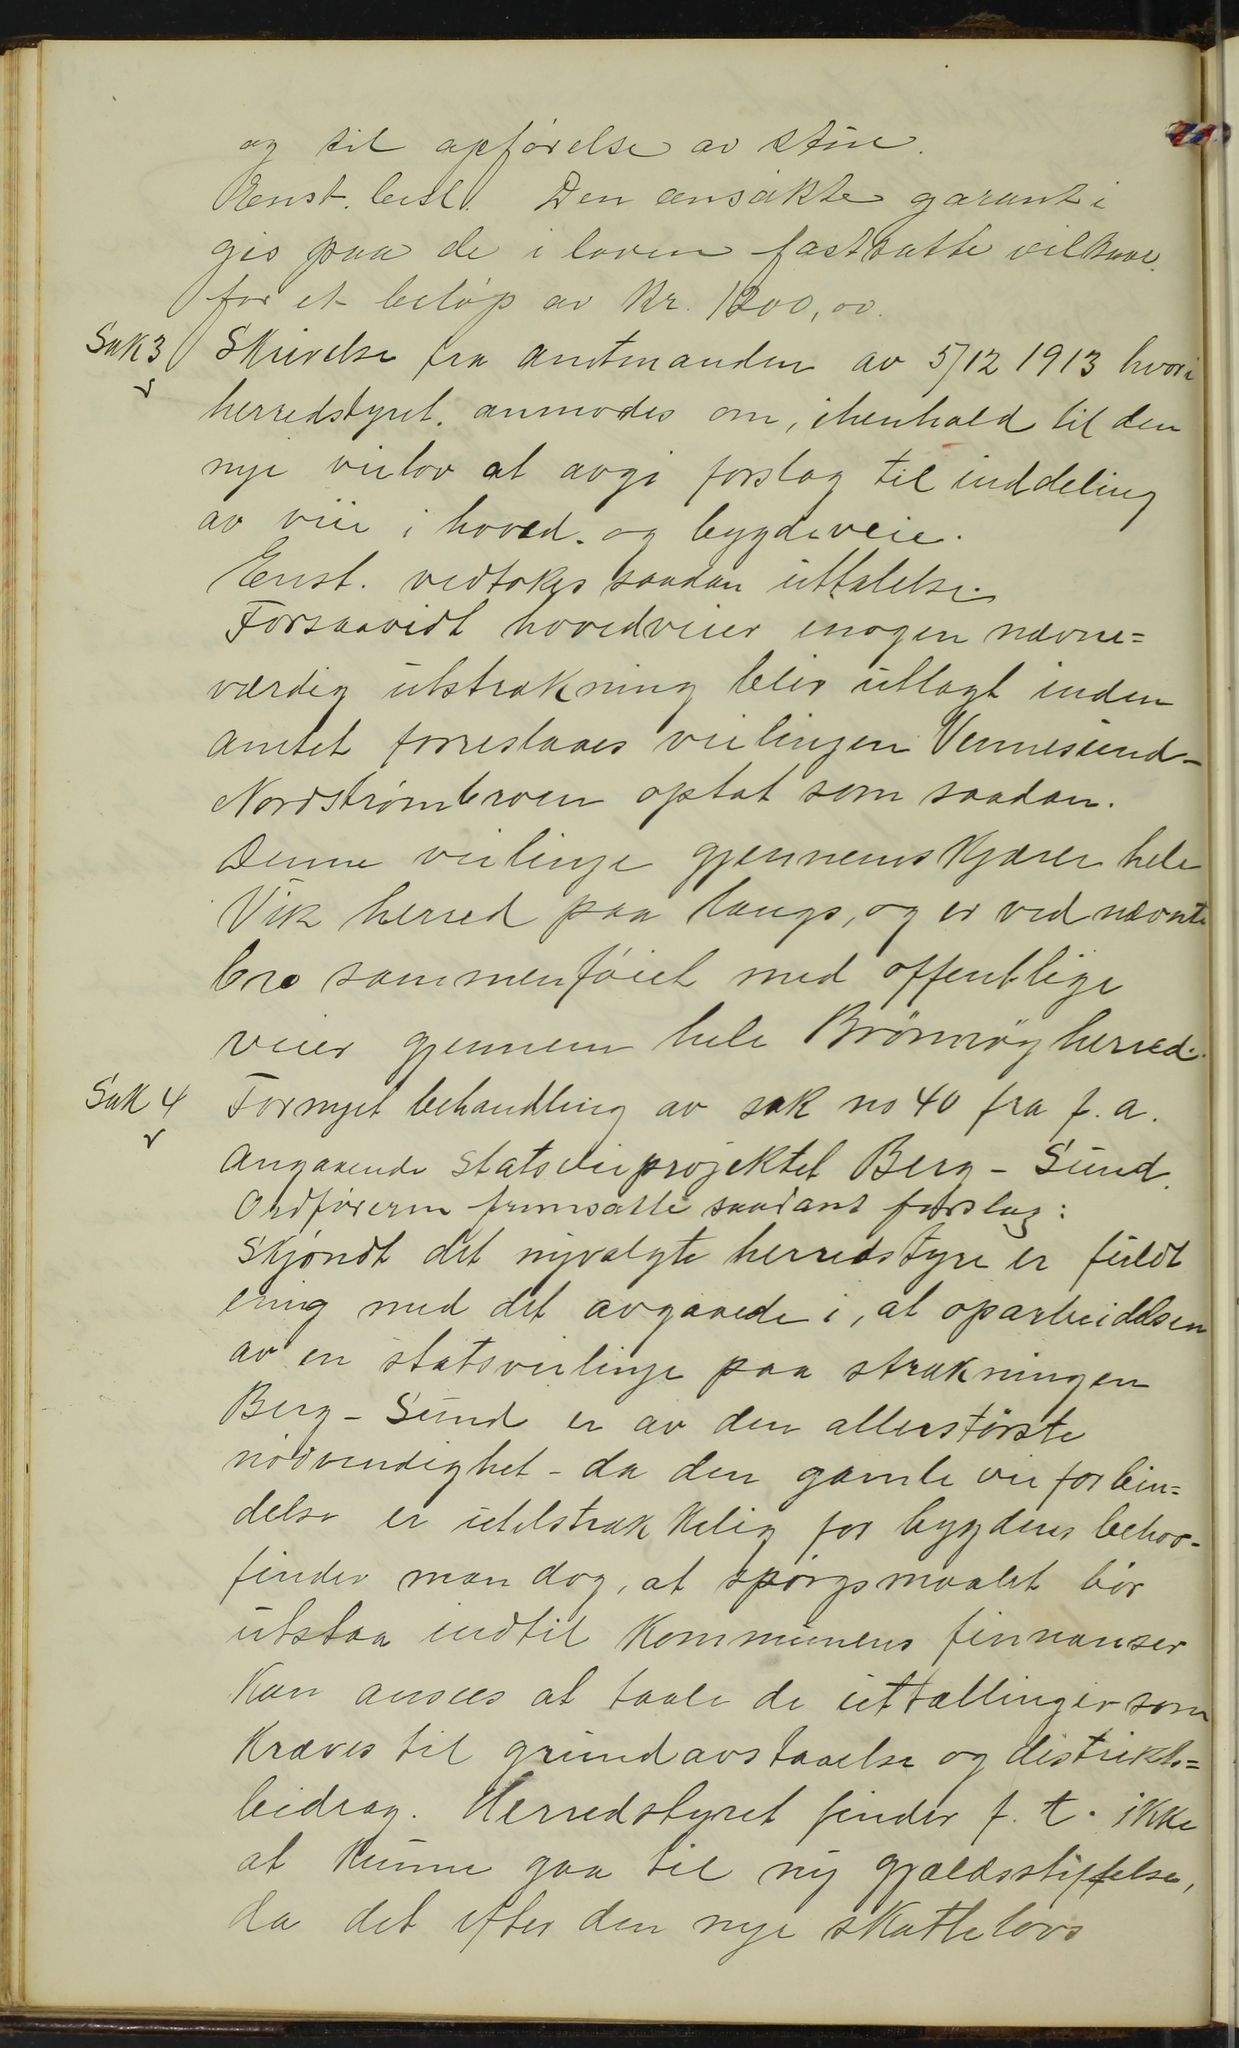 og til opførelse av
Enst. besl. Den ansøkte garanti
gis paa de i loven fastsatte vilkaar
for et beløp av Kr. 1200,00.
Sak 3 Skrivelse fra amtmanden av 5/12 1913 hvori
herredstyret. anmodes om, ihenhold til den
nye veilov at avgi forslag til inddeling
av veie i hoved. og bygdeveie.
Enst. vedtokes saadan uttalelse.
Forsaavidt hovedveier inogen nævne=
værdig utstrækning blir utlagt inden
amtet forreslaaes veilinjen Vennesund-
Nordstrømbroen optat som saadan.
Denne veilinje gjennemskjærer hele
Vik herred paa langs, og er ved nævnte
bro sammenføiet med offentlige
veier gjennem hele Brønnøy herred.
Sak 4 Fornyet behandling av sak no 40 fra f. a.
angaaende statsveiprojektet Berg - Sund.
Ordføreren fremsatte saadant forslag:
Skjøndt det nyvalgte herredstyre er fuldt
enig med det avgaaede i, at oparbeidelsen
av en statsveilinje paa strækningen
Berg - Sund er av den allerstørste
nødvendighet - da den gamle veiforbin=
delse er utilstrækkelig for bygdens behov -
finder man dog, at spørgsmaalet bør
utstaa indtil Kommunens finnanser
Kan ansees at taale de uttællinger som
Kræves til grundavstaaelse og distrikts=
bidrag. Herredstyret finder f. t. ikke
at Kunne gaa til ny gjældsstiftelse,
da det efter den nye skattelovs